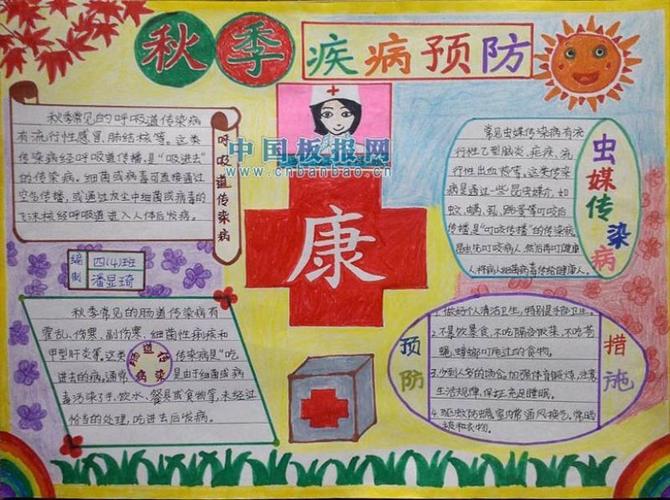 秋季疾病预防
秋季常见的呼吸道传染病
有流行性感冒、肺结核等。这类
传染病经呼吸道传播,是“吸进去”
的传染病。细菌或病毒可直接通过
空气传播,或通过灰尘中细菌或病毒的
飞沫核经呼吸道进入人体后发病。
呼吸道传染病
中国板报网
www.cnbanbao.cn
编制
四(4)班
潘显琦
康
常见虫媒传染病有流
行性乙型脑炎、疟疾、流
行性出血热等。这类传染
病是通过一些昆虫媒介,如
蚊、螨、虱、跳蚤等叮咬后
传播,是“叮咬传播”的传染病
昆虫先叮咬病人,然后再叮健康
人,将病人细菌病毒传给健康人。
虫媒传染病
秋季常见的肠道传染病有
霍乱、伤寒、副伤寒、细菌性痢疾和
甲型肝炎等。这类传染病是“吃
进去的病,通常是由于细菌或病
毒污染了手、饮水、餐具或食物等,未经过
恰当的处理,吃进去后发病。
肠道传染病
预防
措施
1. 做好个人清洁卫生,特别是手部卫生。
2. 不暴饮暴食,不吃隔夜饭菜,不吃苍
蝇、蟑螂叮爬过的食物。
3. 少到人多的场合,加强体育锻炼,注意
生活规律,保证充足睡眠。
4. 驱散防蝇,室内常通风换气,常晒
被和衣物。